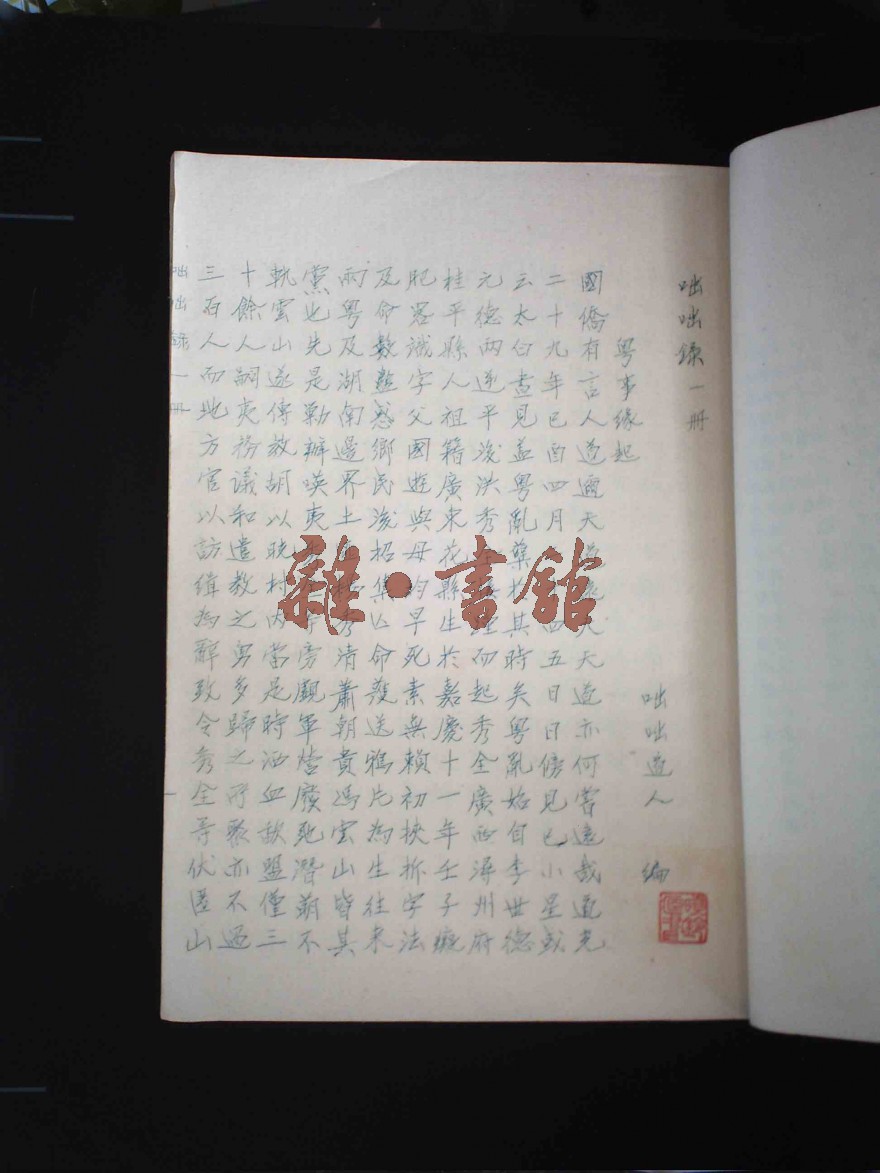 咄咄錄一冊
粵事緣起
咄咄道人 編
國僑有言人道邇天道遠夫天道亦何嘗遠哉道光
二十九年己酉四月四五日日傍見已小星或
云太白晝見益粵亂蘖於其時矣粵亂始自李世德
元德兩逆平後洪秀全理而起秀全廣西潯州府
桂平縣人祖籍廣東花縣生於嘉慶十一年壬子癡
肥畧識字父國遊與母均早死素無賴初挾拆字法
及命數蠱惑鄉民後招集亡命護送鴉片為生往來
兩粵及湖南邊界土楊秀清蕭朝貴馮雲山皆其
黨也先是勦辦嘆夷旁觀軍營廢弛潛萌不
軌雲山遂傳故胡以晄村內當是時洒血歃盟僅三
十餘人嗣夷務議和遣教之勇多歸之所聚亦不過
三百人而此方官以訪緝為辭致令秀全等伏匿山
咄咄錄一冊
一
雜·書館